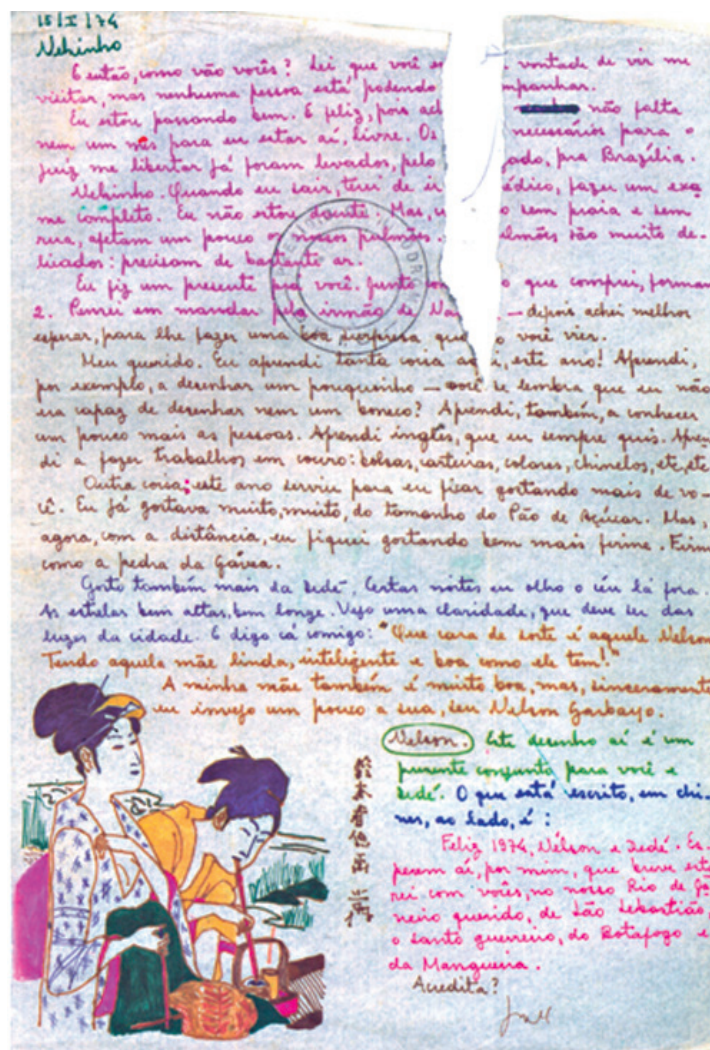 15/I/74
Nelsinho
E então, como vão vocês? Sei que você vontade de vir me
visitar, mas nenhuma pessoa está podendo mpanhar.
Eu estou passando bem. E feliz, pois ach não falta
nem um mês para eu estar aí, livre. Os necessários para o
juiz me libertar já foram levados, pelo ado, pra Brazília.
Nelsinho. Quando eu sair, terei de ir édico, fazer um exa
me completo. Eu não estou doente. Mas, o sem praia e sem
rua, afetam um pouco os nossos pulmões. lmões são muito de-
licados: precisam de bastante ar.
Eu fiz um presente pra você. Junto o que comprei, formam
2. Pensei em mandar pelo irmão de — depois achei melhor
esperar, para lhe fazer uma boa surpresa qu o você vier.
Meu querido. Eu aprendi tanta coisa a i, este ano! Aprendi,
por exemplo, a desenhar um pouquinho — você se lembra que eu não
era capaz de desenhar nem um boneco? Aprendi, também, a conhecer
um pouco mais as pessoas. Aprendi inglês, que eu sempre quis. Apren
di a fazer trabalhos em couro: bolsas, carteiras, colares, chinelos, etc, etc
Outra coisa; este ano serviu para eu ficar gostando mais de vo-
cê. Eu já gostava muito, muito, do tamanho do Pão de Açúcar. Mas,
agora, com a distância, eu fiquei gostando bem mais firme. Firme
como a pedra da Gávea.
Gosto também mais da Dedé. Certas noites eu olho o céu lá fora.
As estrelas bem altas, bem longe. Vejo uma claridade, que deve ser das
luzes da cidade. E digo cá comigo: "Que cara de sorte é aquele Nelson
Tendo aquela mãe linda, inteligente e boa como ele tem!"
A minha mãe também é muito boa, mas, sinceramente
eu invejo um pouco a sua, seu Nelson Garbayo.
Nelson. Este desenho aí é um
presente conjunto para você e
Dedé. O que está escrito, em chi-
nes, ao lado, é:
Feliz 1974, Nélson e Dedé. Es-
perem aí, por mim, que breve esta
rei com vocês, no nosso Rio de Ja
neiro querido, de São Sebastião,
o santo guerreiro, do Botafogo e
da Mangueira.
Acredita?